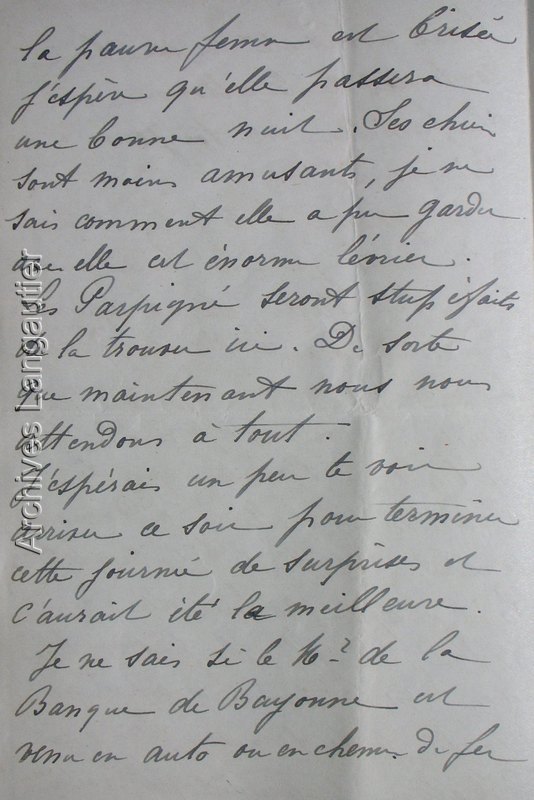 la pauvre femme est brisée
j'espère qu'elle passera
une bonne nuit. Ses chiens
sont moins amusants, je ne
sais comment elle a pu garder
avec elle cet énorme lévrier.
Les Parpigné seront stupéfaits
de la trouver ici. De sorte
que maintenant nous nous
attendons à tout.
J'espérais un peu te voir
arriver ce soir pour terminer
cette journée de surprises et
c'aurait été la meilleure.
Je ne sais si le Mr de la
Banque de Bayonne est
venu en auto ou en chemin de fer
Archives Langautier